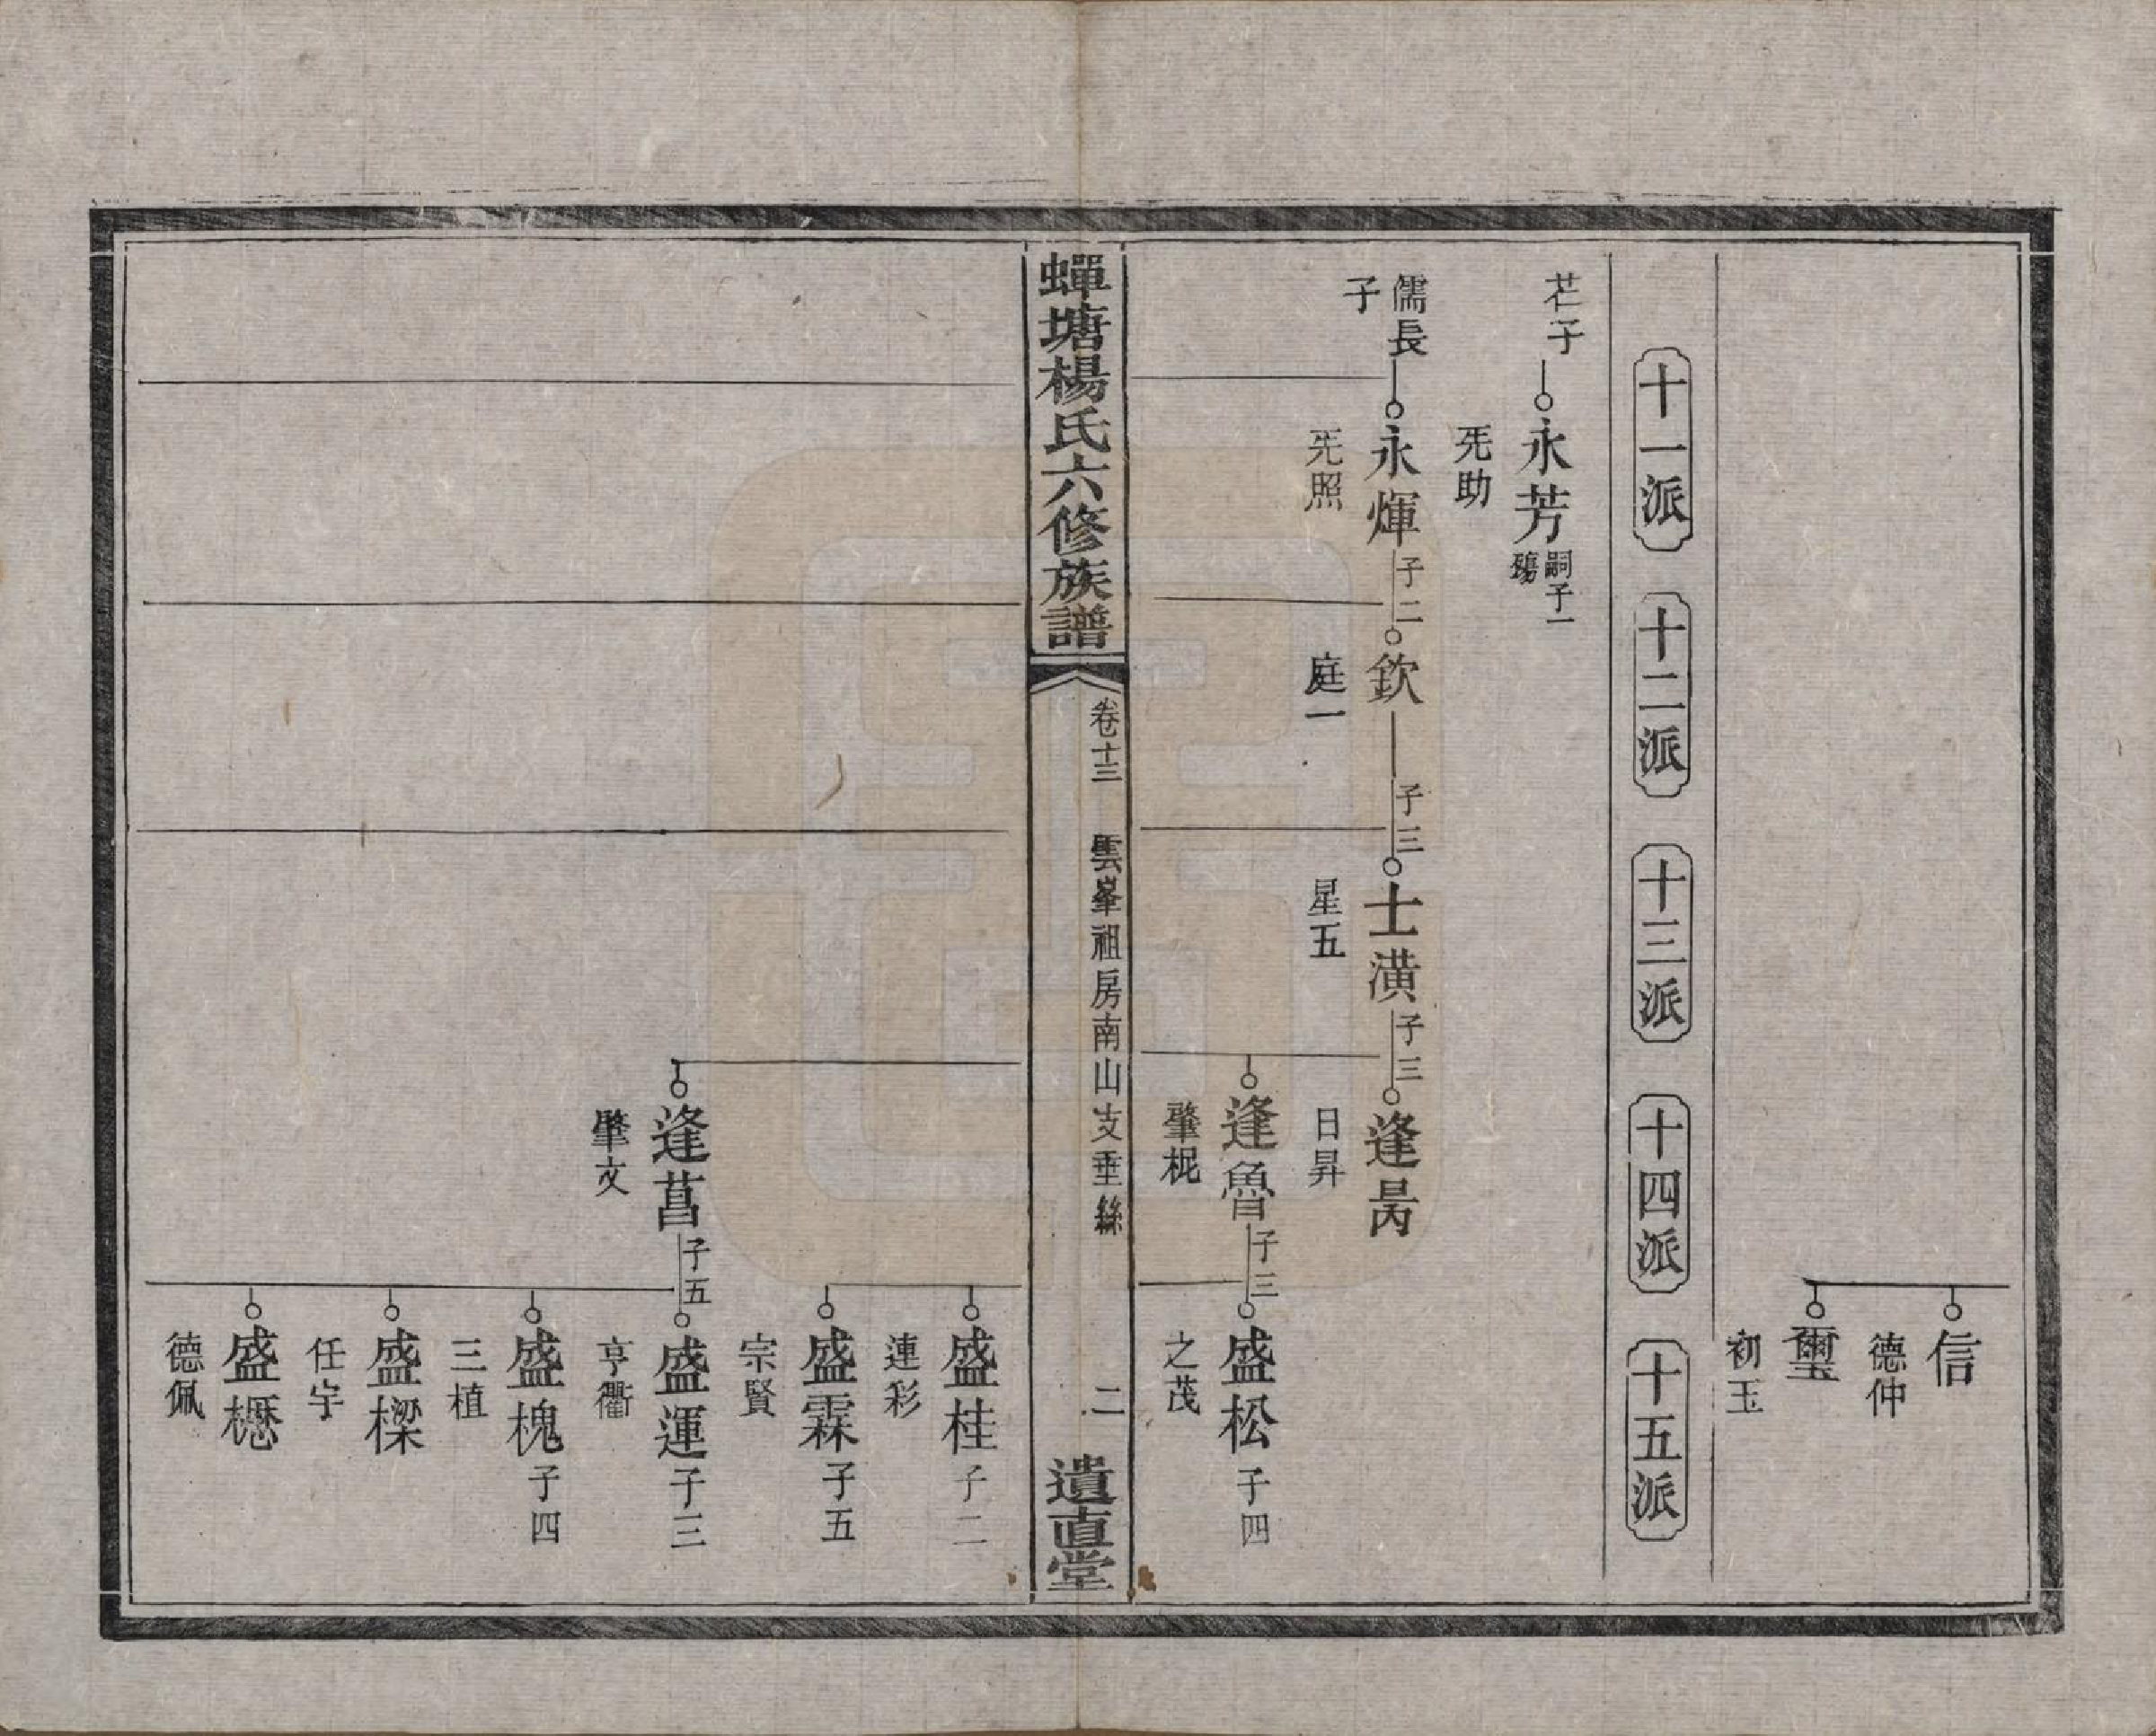 信
德仲
璽
初玉
十一派
十二派
十三派
十四派
十五派
芒子
永芳
嗣子一
殤
旡助
儒長
子
永煇
子二
旡照
欽
子三
庭一
士潢
子三
星五
逢昺
日昇
逢魯
子三
肇柅
盛松
子四
之茂
蟬塘楊氏六修族譜
卷十三
雲峯祖房南山支垂絲
二
遺直堂
盛桂
子二
連彩
盛霖
子五
宗賢
逢菖
子五
肇文
盛運
子三
亨衢
盛槐
子四
三植
盛樑
任宇
盛櫪
德佩